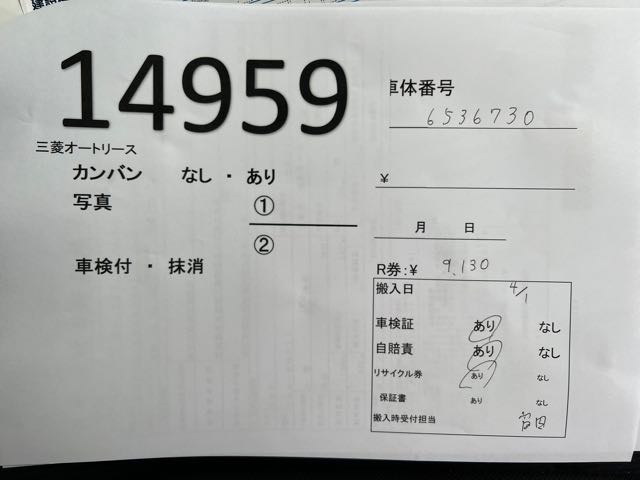 14959
車体番号
6536730
三菱オートリース
カンバン なし ・ あり
¥
写真 ①
②
月 日
車検付 ・ 抹消
R券:¥ 9,130
搬入日 4/1
車検証 あり なし
自賠責 あり なし
リサイクル券 あり なし
保証書 あり なし
搬入時受付担当